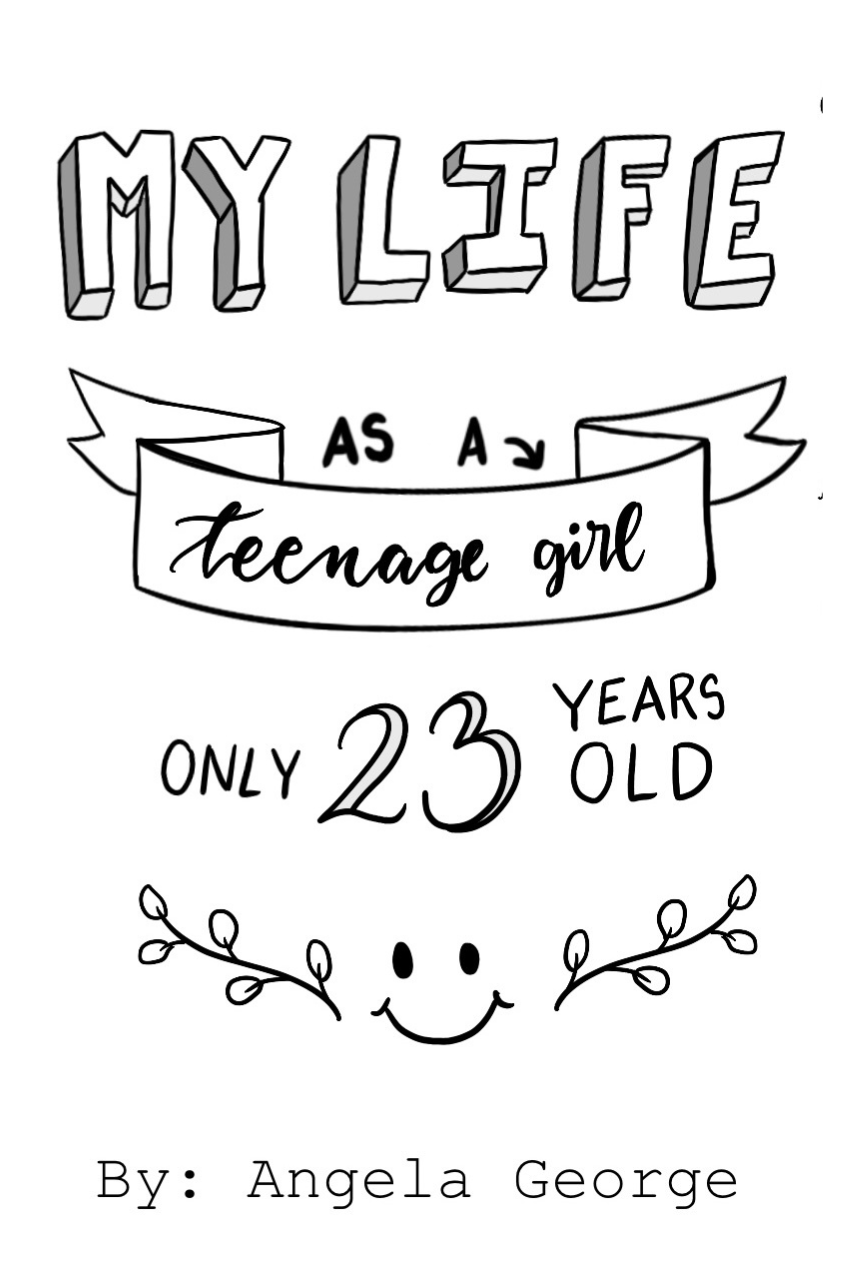 MY LIFE
AS A
teenage girl
ONLY 23 YEARS
OLD
By: Angela George